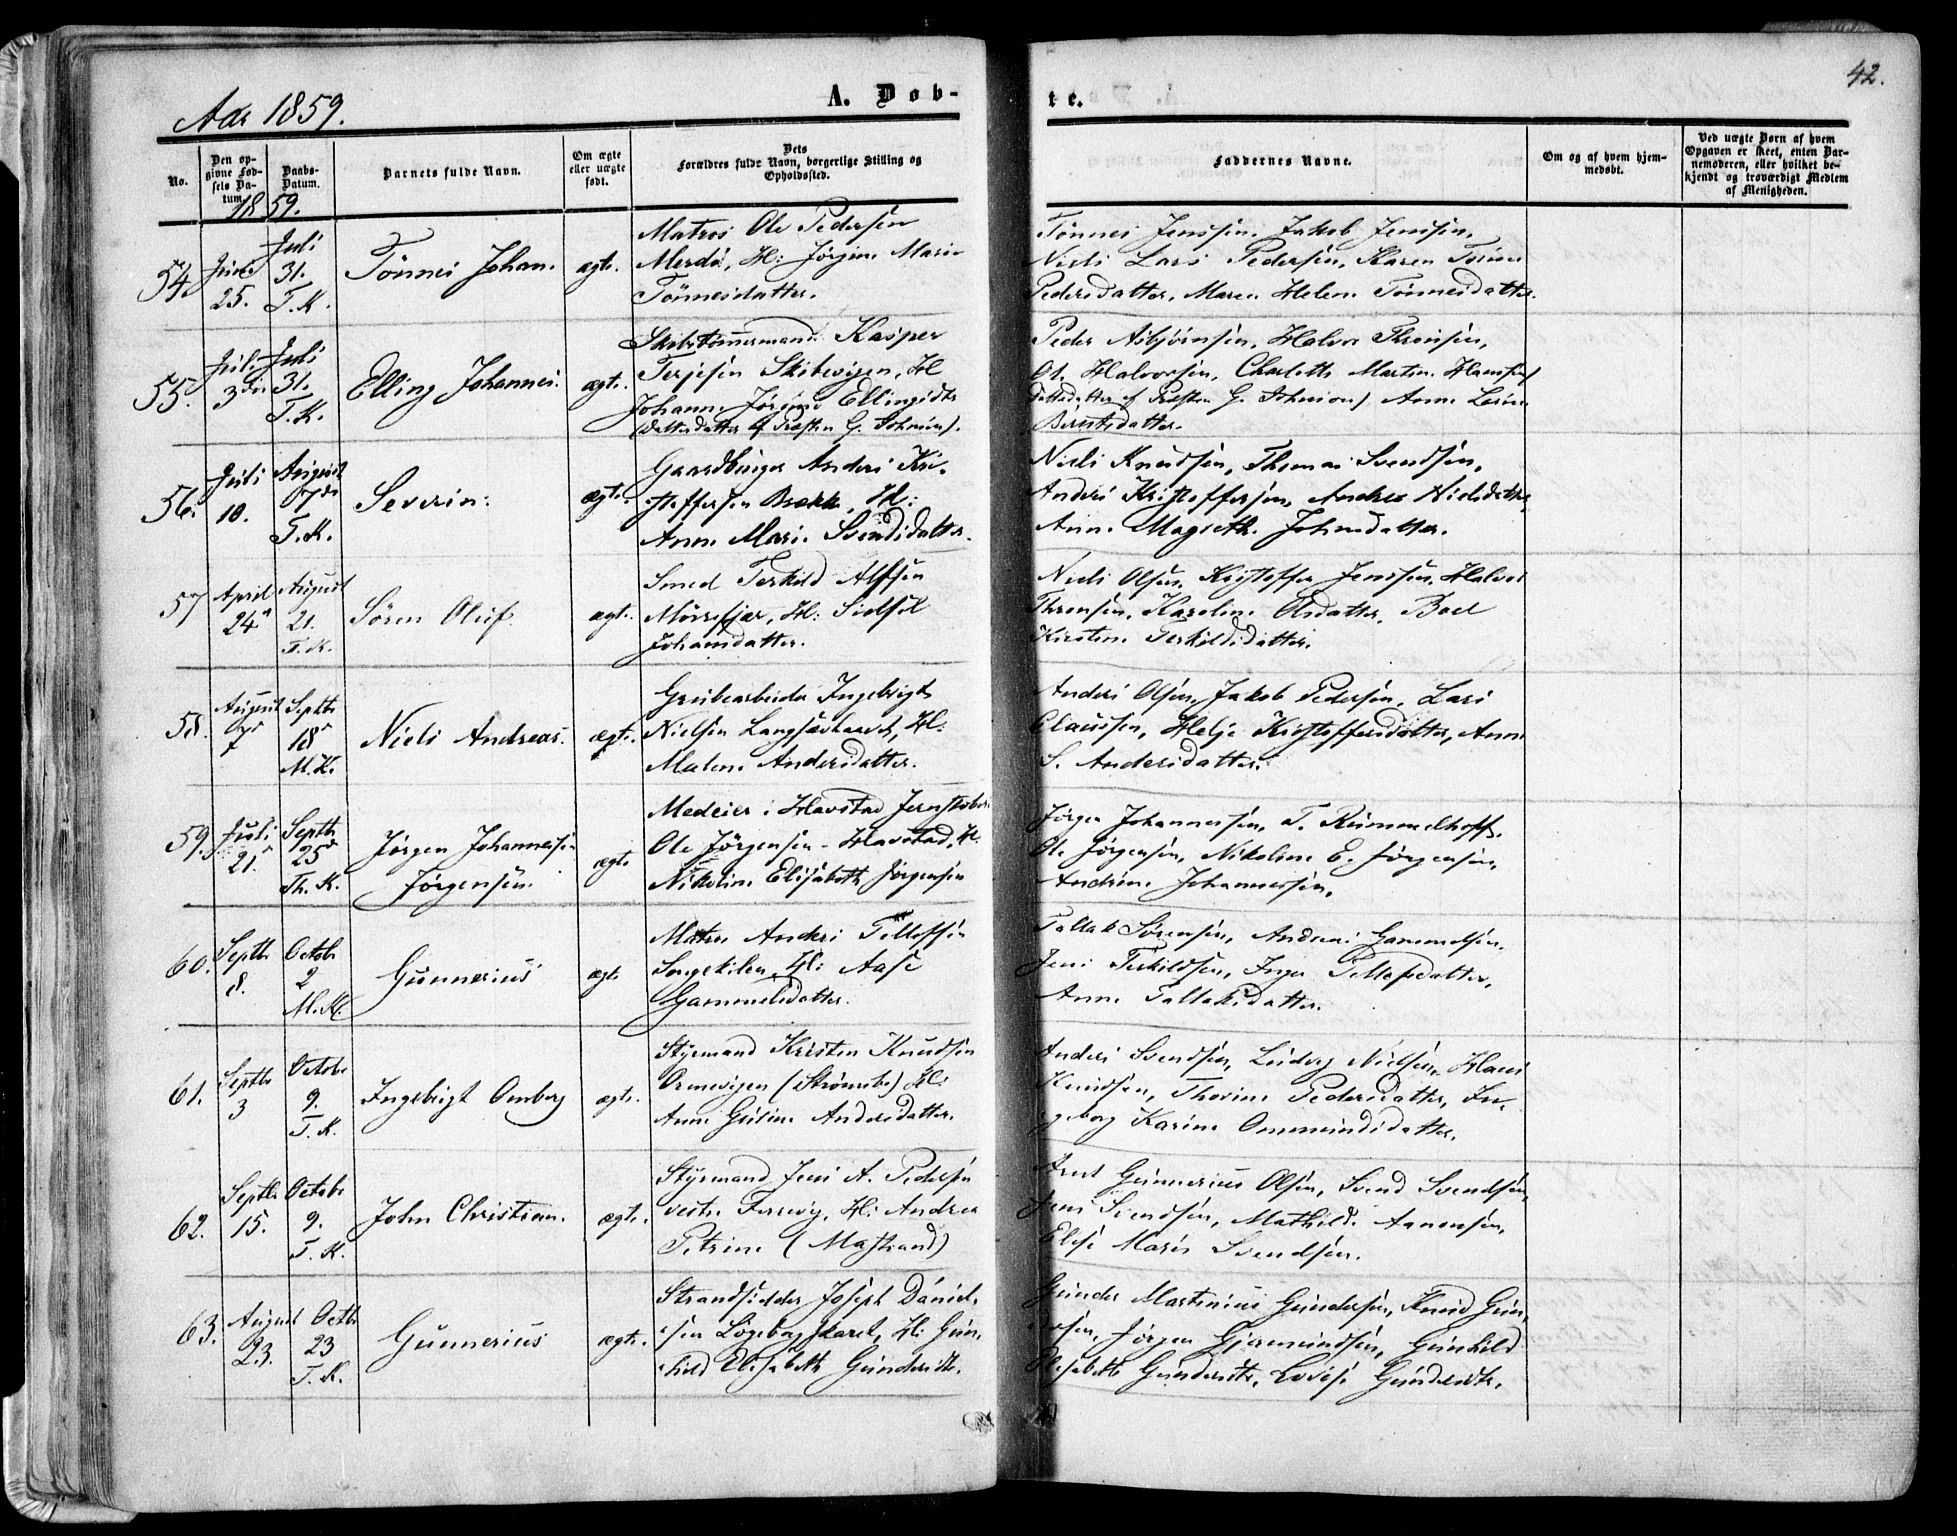 Aar 1859.
A. Døb-
te.
42.
No.
Den op-
givne Fød-
sels Da-
tum.
Daabs-
Datum.
Barnets fulde Navn.
Om ægte
eller uægte
født.
Dets
Forældres fulde Navn, borgerlige Stilling og
Opholdssted.
Faddernes Navne.
Om og af hvem hjem-
medøbt.
Ved uægte Børn af hvem
Opgaven er skeet, enten Bar-
nemoderen, eller hvilket be-
kjendt og troværdigt Medlem
af Menigheden.
1859.
54.
25.
Juli
31.
T. K.
Tønnes Johan.
ægte.
Matros Ole Pedersen
Merdø, H: Jørgine Marie
Tønnesdatter.
Tønnes Jenssen, Jakob Jenssen,
Niels Lars Pedersen, Karen
Pedersdatter, Maren Helene Tønnesdatter.
55.
Juli
3die
Juli
31.
T. K.
Elling Johannes.
ægte.
Skibstømmermand Kasper
Terjesen Skibevigen, H
Johanne Jørgine Ellingsdtr
(Datterdatter af Præsten G. ).
Peder Asbjørnsen, Halvor Thronsen,
Halvorsen, Charlotte Martine Hanssen
Datterdatter af Præsten G. Anne
Berntsdatter.
56.
Juli
10.
August
7de
T. K.
Severin.
ægte.
Gaardbruger Anders Kri-
stoffersen Brekke, H:
Anne Marie Svendsdatter.
Niels Knudsen, Thomas Svendsen,
Anders Kristoffersen, Andrea Nielsdatter,
Anne Magrethe Johnsdatter.
57
April
24
August
21.
T. K.
Søren Oluf.
ægte.
Smed Terkild Alfsen
Mørefjær, H: Sidsel
Johansdatter.
Niels Olsen, Kristoffer Jenssen, Halvor
Thronsen, Karoline Olsdatter, Boel
Kirstine Terkildsdatter.
58.
August
7
Septbr
18
M. K.
Niels Andreas.
ægte.
Grubearbeider Ingebrigt
Nielsen Langsævhaven, H:
Malene Andersdatter.
Anders Olsen, Jakob Pedersen, Lars
Claussen, Helje Kristoffersdatter, Anne
S. Andersdatter.
59.
Juli
21.
Septbr
25
Th. K.
Jørgen Johannessen
Jørgensen.
ægte
Medeier i Havstad Jernstøberi
Ole Jørgensen - Havstad, H.
Nikoline Elisabeth Jørgensen
Jørgen Johannessen, T. Rummelhoff,
Ole Jørgensen, Nikoline E. Jørgensen,
Andrine Johannessen.
60.
Septbr
8.
Octobr
2
M. K.
Gunnerius
ægte
Matros Anders Tellefsen
Songekilen, H: Aase
Gammelsdatter.
Tallak Sørensen, Andreas Gammelsen,
Jens Terkildsen, Inger Tellefsdatter,
Anne Tallaksdatter.
61.
Septbr
3
Octobr
9.
T. K.
Ingebrigt Omberg
ægte.
Styrmand Kristen Knudsen
Ormevigen (Strømsbo) H:
Anne Guline Andersdatter.
Anders Svendsen, Ludvig Nielsen, Hans
Knudsen, Thorine Pedersdatter, In-
geborg Karine Ommundsdatter.
62.
Septbr
15.
Octobr
9.
T. K.
John Christian.
ægte.
Styrmand Jens A. Pedersen
vestre Færvig, H: Andrea
Petrine (Mastrand)
Arnt Gunnerius Olsen, Svend Svendsen,
Jens Svendsen, Mathilde Aanensen,
Elise Marie Svendsen.
63.
August
23.
Octbr
23
T. K.
Gunnerius
ægte.
Strandsidder Joseph Daniel-
sen Løgebergskaret, H: Gun-
hild Elisabeth Gundersdtr.
Gunder Martinius Gundersen, Knud Gun-
dersen, Jørgen Gjermundsen, Gunhild
Elisabeth Gundersdtr, Lovise Gundersdtr.